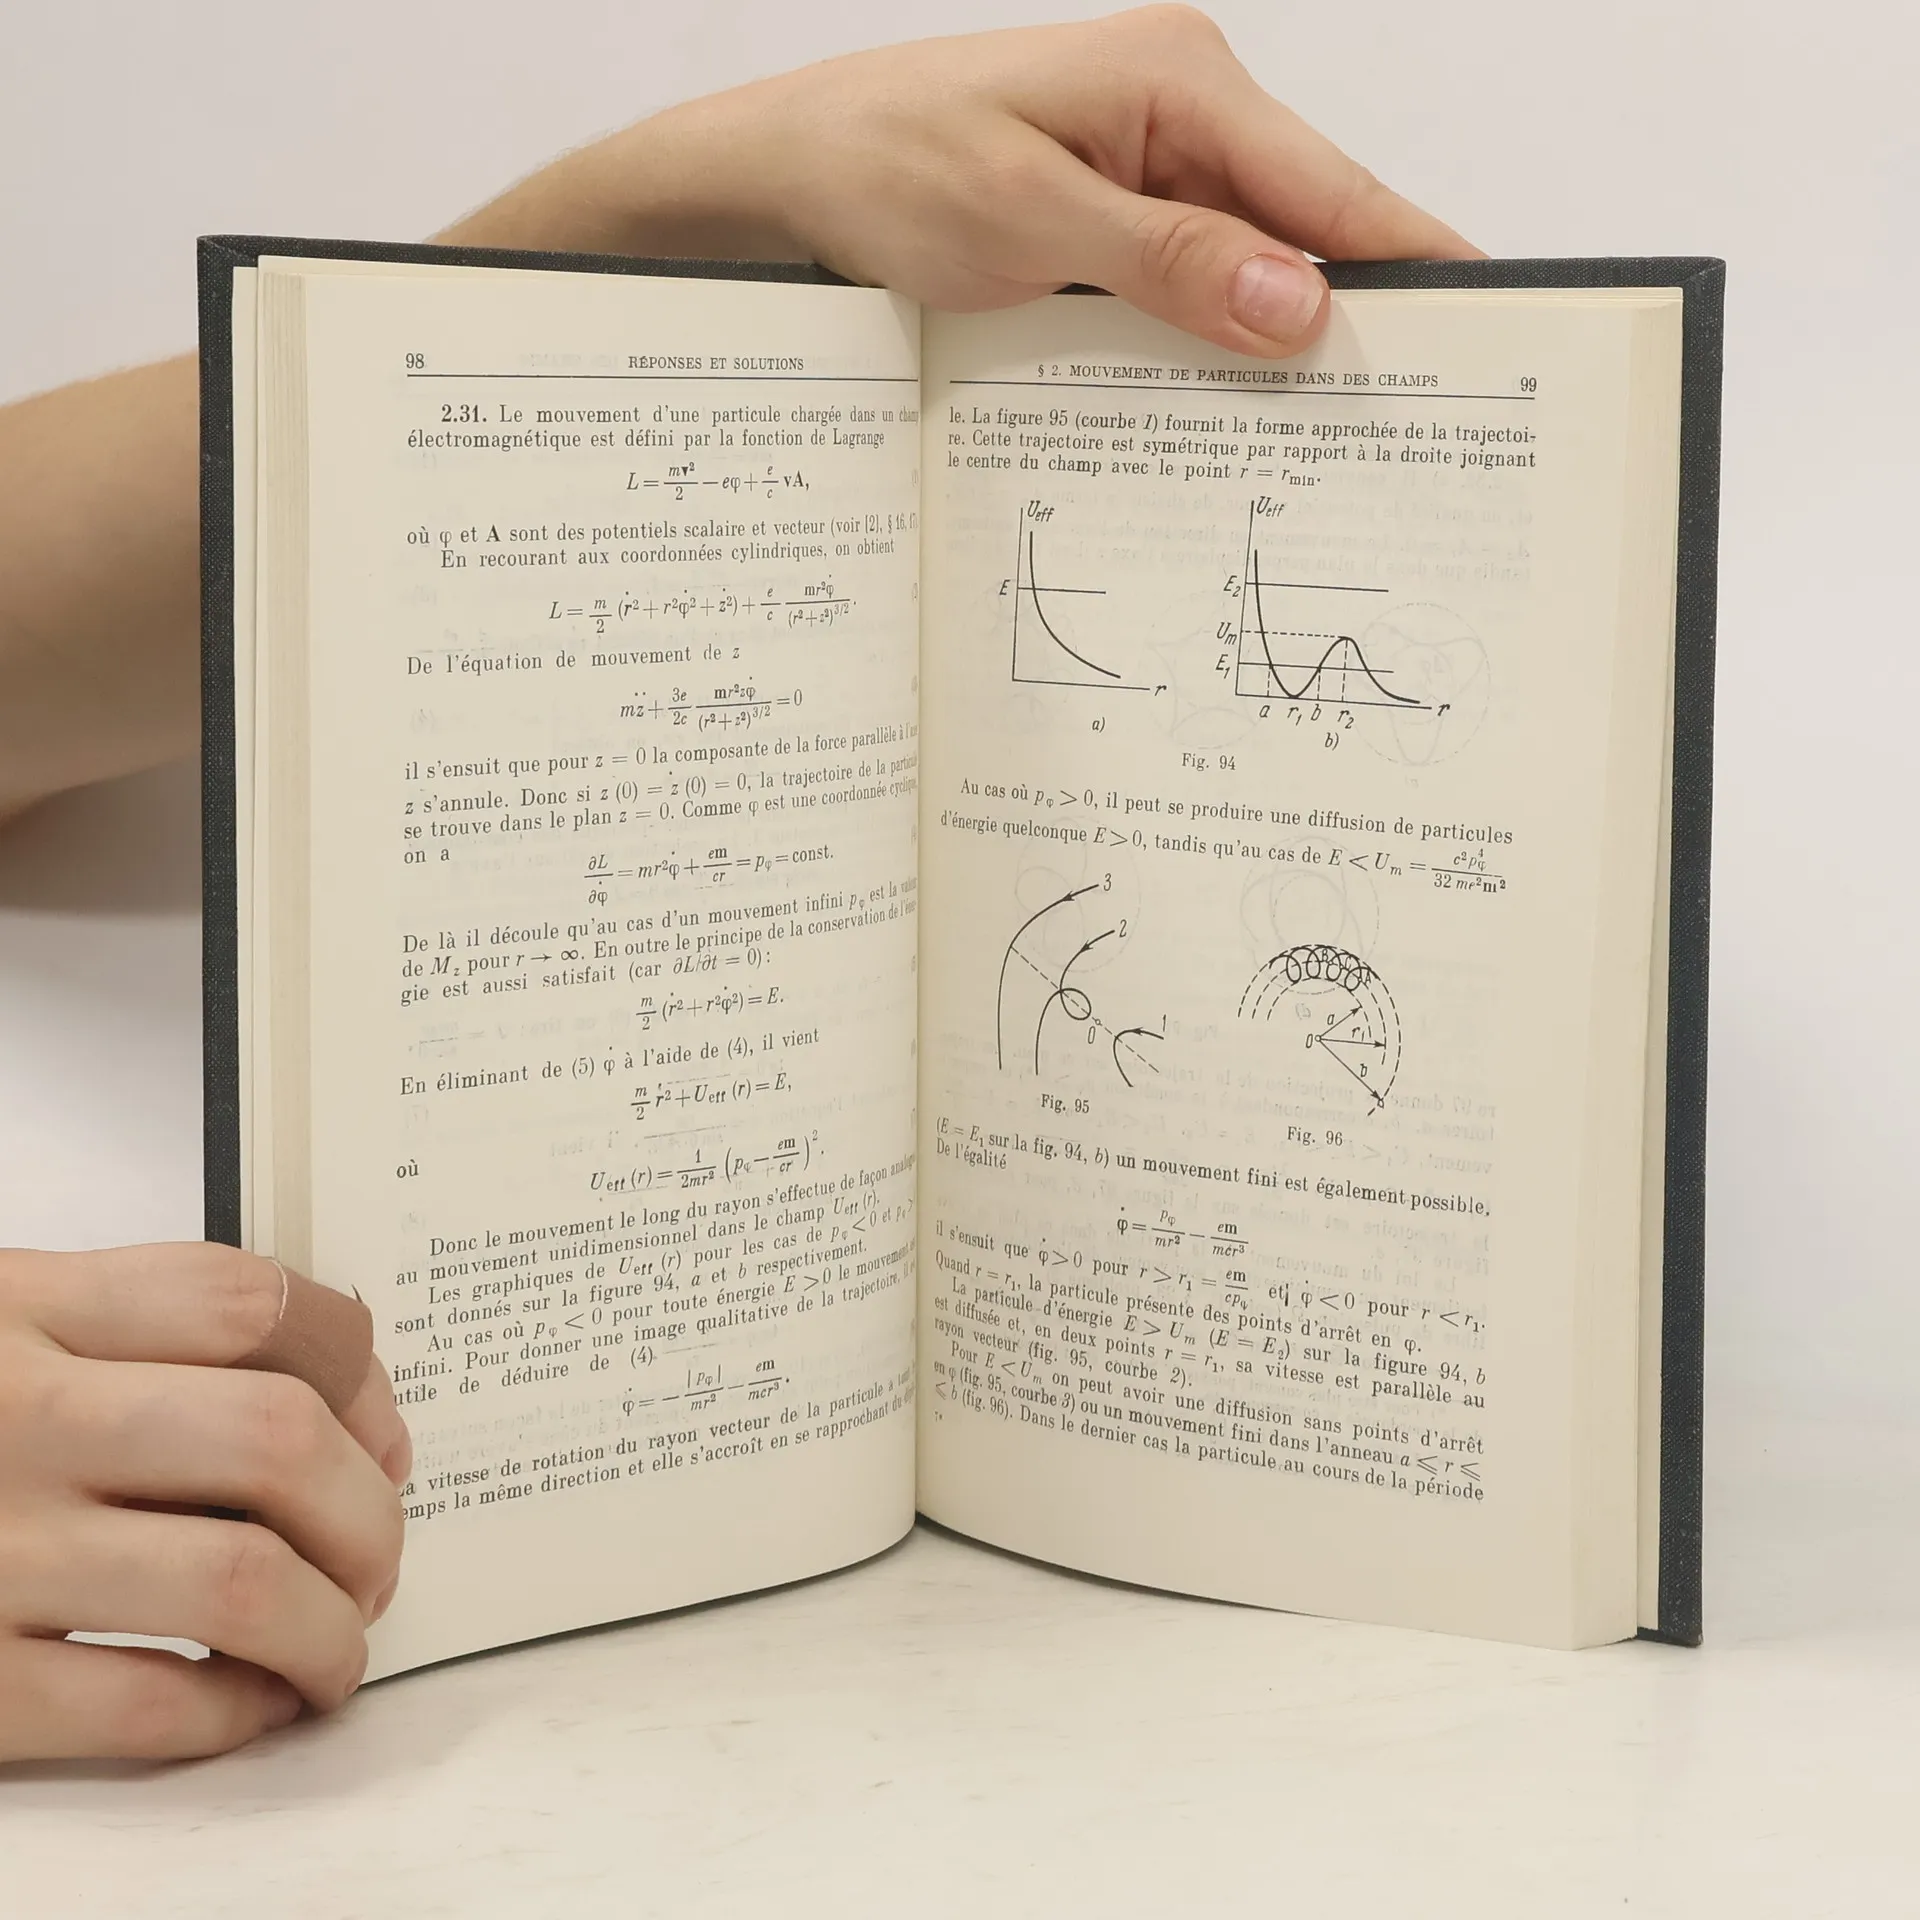 98 RÉPONSES ET SOLUTIONS
2.31. Le mouvement d'une particule chargée dans un
électromagnétique est défini par la fonction de Lagrange
L = mv²/2 — eφ + e/c vA,
où φ et A sont des potentiels scalaire et vecteur (voir [2], § 16,
En recourant aux coordonnées cylindriques, on obtient
L = m/2 (ṙ² + r²φ̇² + ż²) + e/c mr²φ̇/(r² + z²)^3/2.
De l'équation de mouvement de z
mz̈ + 3e/2c mr²zφ̇/(r² + z²)^3/2 = 0
il s'ensuit que pour z = 0 la composante de la force parallèle à
z s'annule. Donc si z (0) = ż (0) = 0, la trajectoire de la
se trouve dans le plan z = 0. Comme φ est une coordonnée
on a
∂L/∂φ̇ = mr²φ̇ + em/cr = pφ = const.
De là il découle qu'au cas d'un mouvement infini pφ est la
de Mz pour r → ∞. En outre le principe de la conservation de
gie est aussi satisfait (car ∂L/∂t = 0):
m/2 (ṙ² + r²φ̇²) = E.
En éliminant de (5) φ̇ à l'aide de (4), il vient
m/2 ṙ² + Ueff (r) = E,
où
Ueff (r) = 1/2mr² (pφ — em/cr)².
Donc le mouvement le long du rayon s'effectue de façon
au mouvement unidimensionnel dans le champ Ueff (r).
Les graphiques de Ueff (r) pour les cas de pφ < 0 et pφ >
sont donnés sur la figure 94, a et b respectivement.
Au cas où pφ < 0 pour toute énergie E > 0 le mouvement
infini. Pour donner une image qualitative de la trajectoire,
utile de déduire de (4)
φ̇ = — |pφ|/mr² — em/mcr³.
vitesse de rotation du rayon vecteur de la particule a
la même direction et elle s'accroît en se rapprochant du
§ 2. MOUVEMENT DE PARTICULES DANS DES CHAMPS 99
le. La figure 95 (courbe 1) fournit la forme approchée de la trajectoi-
re. Cette trajectoire est symétrique par rapport à la droite joignant
le centre du champ avec le point r = rmin.
Ueff
E
r
a)
Ueff
E2
Um
E1
a r1 b r2
r
b)
Fig. 94
Au cas où pφ > 0, il peut se produire une diffusion de particules
d'énergie quelconque E > 0, tandis qu'au cas de E < Um = c²pφ⁴/32 me²m²
3
2
1
0
Fig. 95
B C A
a
r1
0
b
Fig. 96
(E = E1 sur la fig. 94, b) un mouvement fini est également possible.
De l'égalité
φ̇ = pφ/mr² — em/mcr³
il s'ensuit que φ̇ > 0 pour r > r1 = em/cpφ et φ̇ < 0 pour r < r1.
Quand r = r1, la particule présente des points d'arrêt en φ.
La particule d'énergie E > Um (E = E2) sur la figure 94, b
est diffusée et, en deux points r = r1, sa vitesse est parallèle au
rayon vecteur (fig. 95, courbe 2).
Pour E < Um on peut avoir une diffusion sans points d'arrêt
en φ (fig. 95, courbe 3) ou un mouvement fini dans l'anneau a ⩽ r ⩽
⩽ b (fig. 96). Dans le dernier cas la particule au cours de la période
7*